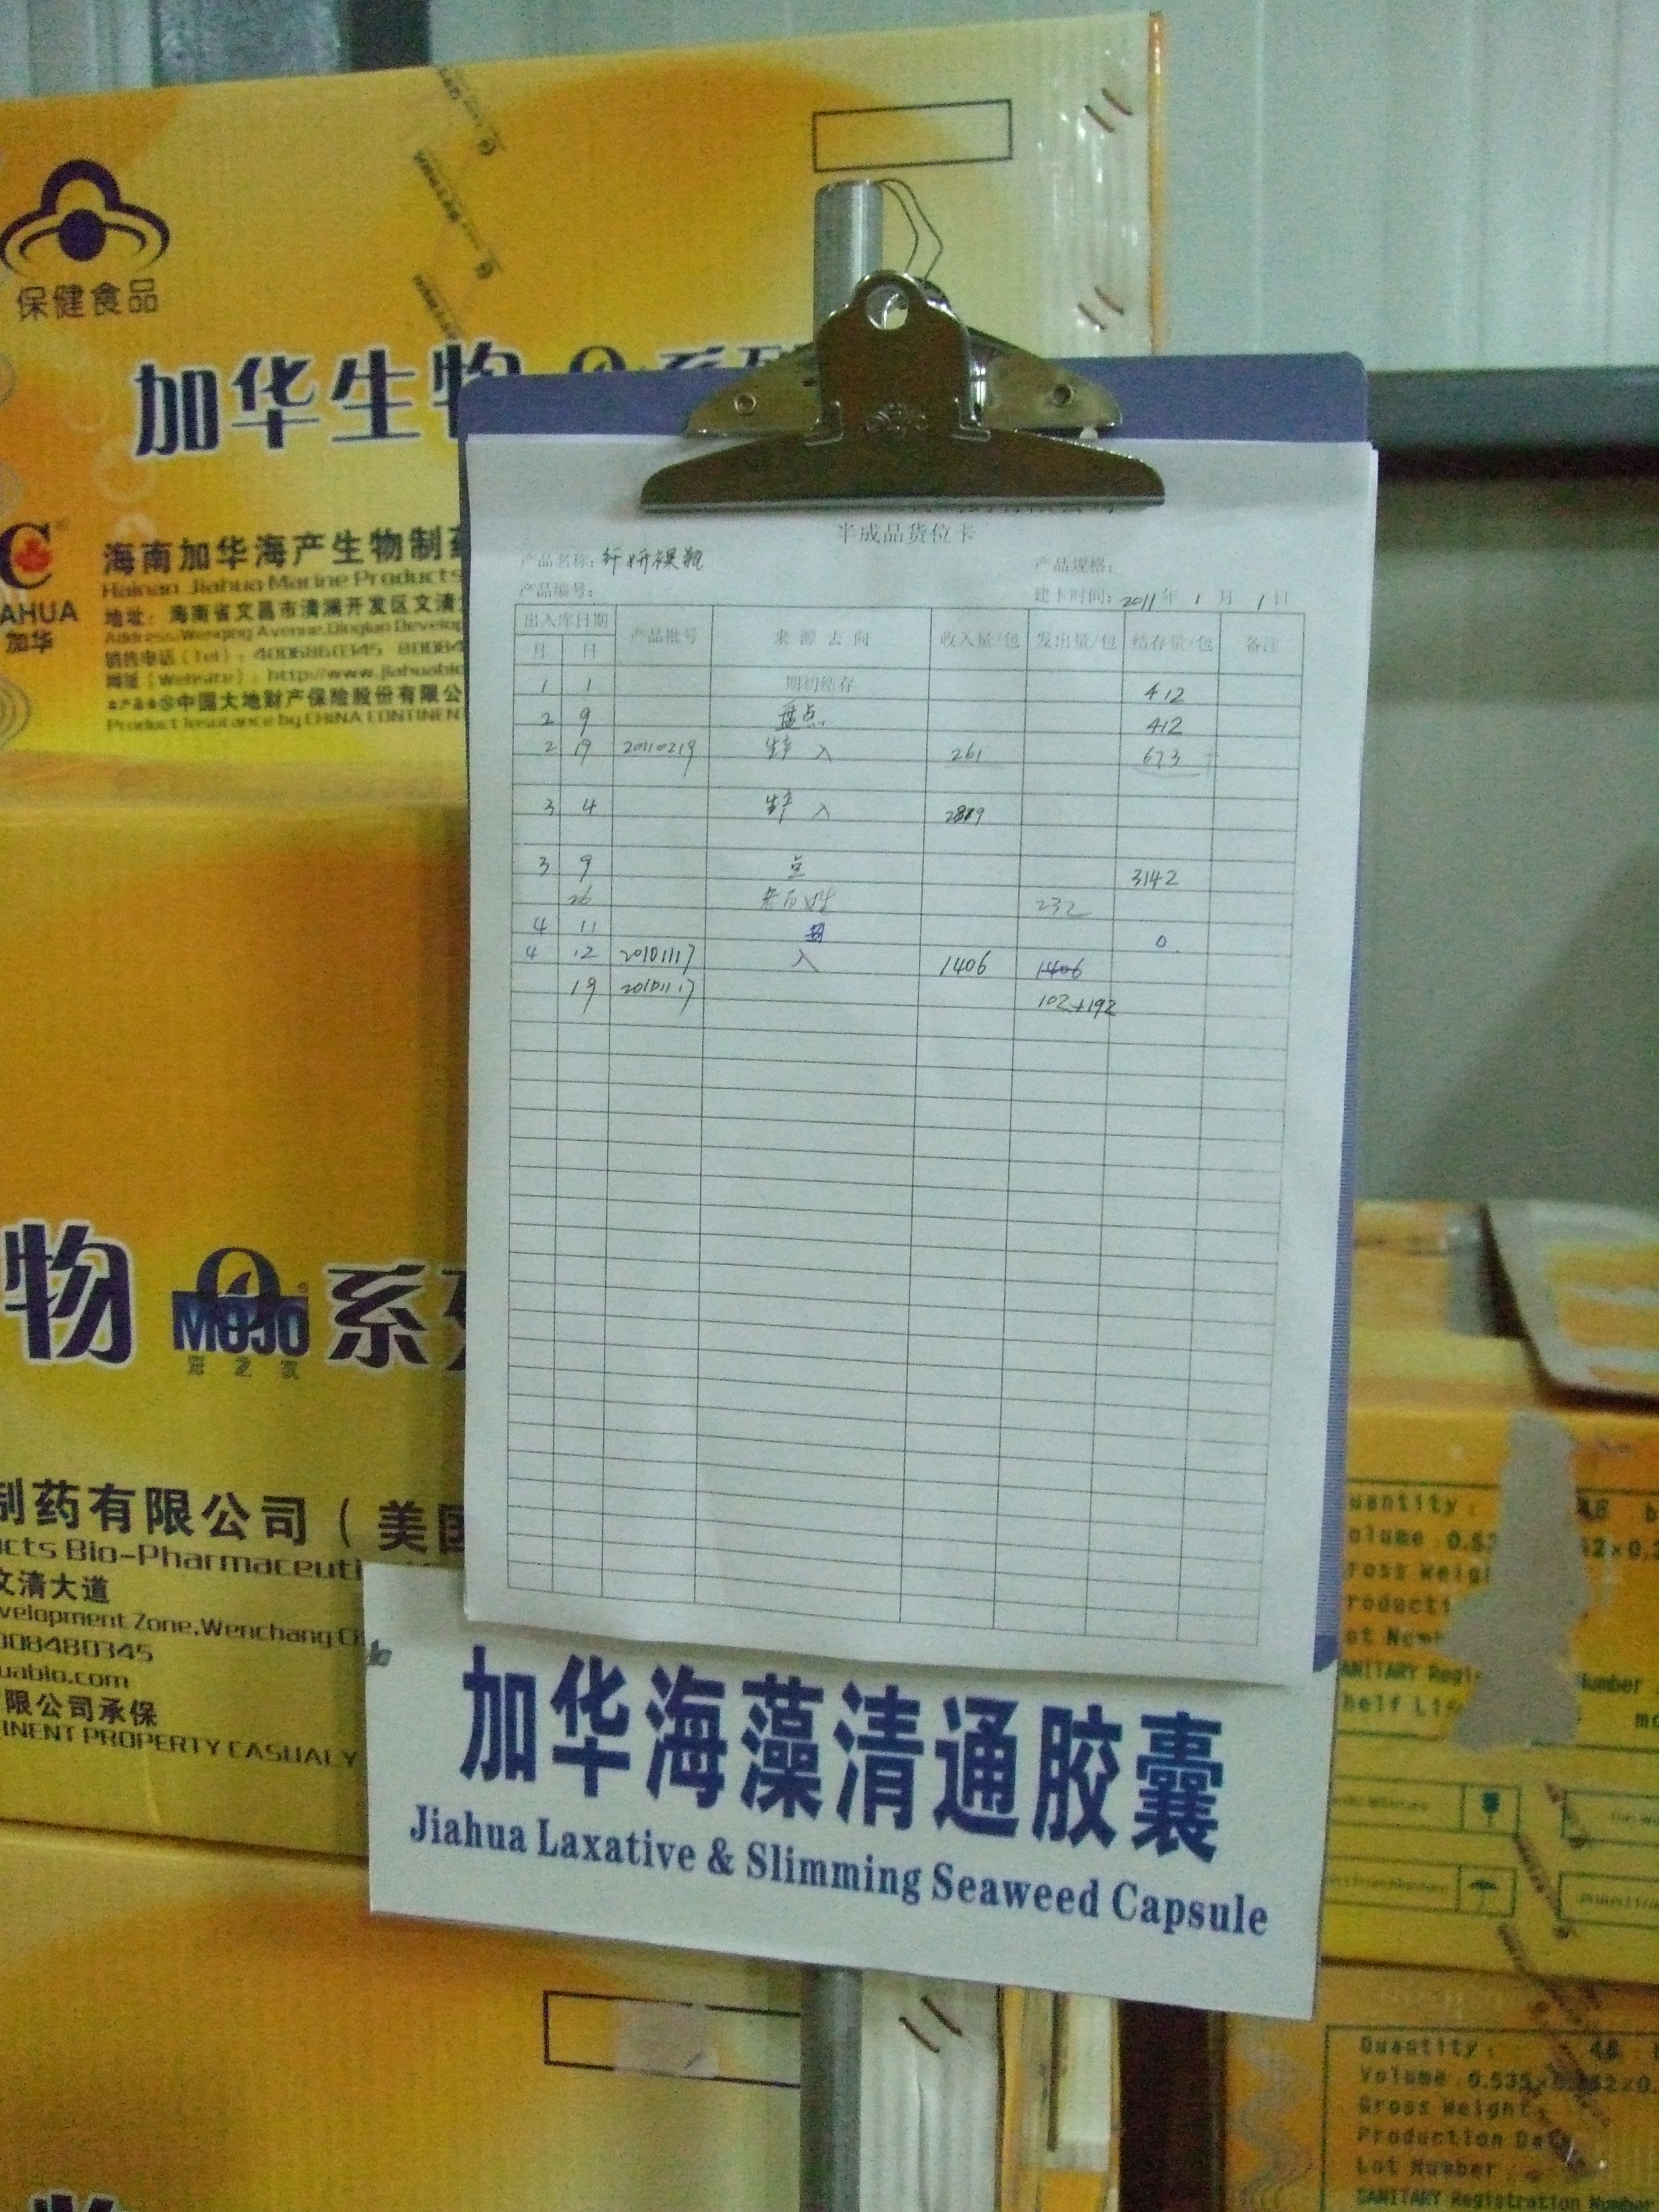 保健食品
加华生物
系列
AHUA
加华
海南加华海产生物制药
Hainan Jiahua Marine Products
地址：海南省文昌市清澜开发区文清大
Address:Wenqing Avenue,Qinglan Develop
销售电话（Tel）：4006860345 80084
网址（Website）：http://www.jiahuabio
中国大地财产保险股份有限公
Product Insurance by CHINA CONTINEN
半成品货位卡
产品名称：纤妍裸瓶 产品规格：
产品编号： 建卡时间：2011年 1 月 1日
出入库日期 产品批号 来源去向 收入量/包 发出量/包 结存量/包 备注
月 日
1 1 期初结存 412
2 9 盘点 412
2 19 20110219 生产 入 261 673
3 4 生产 入
3 9 点 3142
26 老百姓 232
4 11 0
4 12 20101117 入 1406 1406
19 20101117 102+192
物 MOJO 系列
海之家
制药有限公司（美国
ucts Bio-Pharmaceuti
文清大道
velopment Zone,Wenchang Ci
008480345
uabio.com
限公司承保
INENT PROPERTY CASUALY
加华海藻清通胶囊
Jiahua Laxative & Slimming Seaweed Capsule
uantity： 48 b
olume：0.53
ross Weigh
roducti
ot Numb
ANITARY Regis Number
helf Lif mo
Quantity： 48
Volume：0.535×
Gross Weight：
Production Da
Lot Number：
SANITARY Registration Number